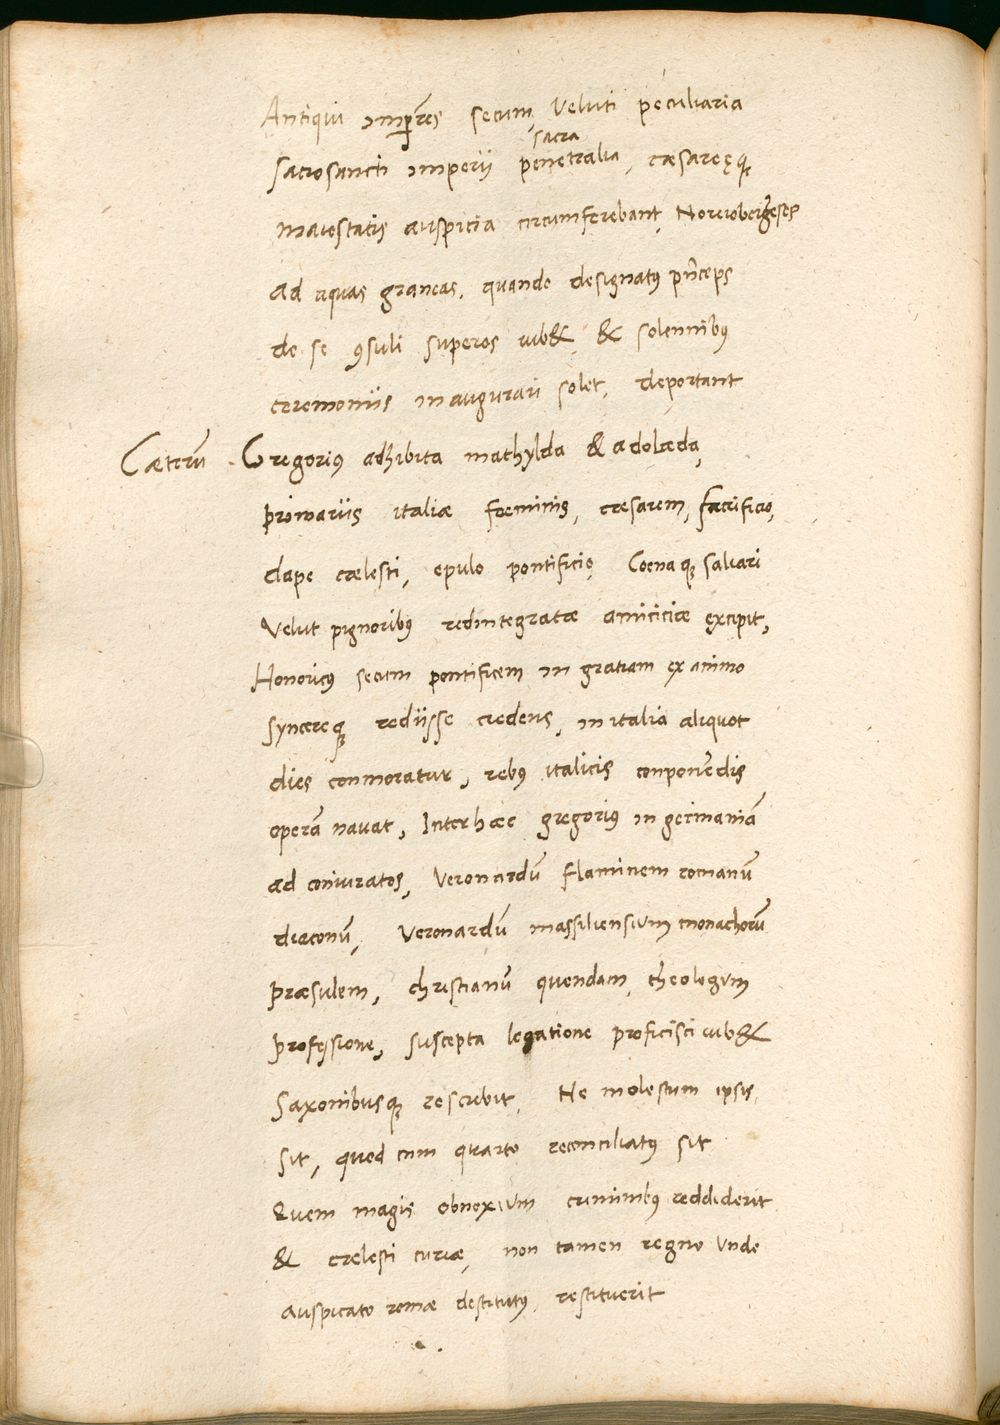 Antiqui imp̄res secum, Veluti peculiaria
sacra
sacrosancti imperii penetralia, cæsareęqꝫ
maiestatis auspitia circumferebant, Noreiobergēses
ad aquas graneas, quando designatꝰ pn̄ceps
de se ꝯsuli superos iub&, & solennibꝰ
ceremoniis inaugurari solet, deportant
Cæterū Gregorius adhibita mathylda & adolæda,
primariis italiæ fœminis, cæsarem, sacrificio,
dape cælesti, epulo pontificio, Coenaqꝫ saliari
Velut pignoribꝰ redintegratæ amiciciæ excipit,
Honoricꝰ secum pontificem in gratiam ex animo
syncereqꝫ rediisse credens, in italia aliquot
dies conmoratur, rebꝰ italicis conponēdis
operā navat, Interhæc gregorius in germaniā
ad coniuratos, Veronardū flaminem romanū
diaconū, Veronardū massiliensium monachorū
præsulem, christianū quendam, theologum
professione, suscepta legatione proficisci iub&
Saxonibusqꝫ rescribit, Ne molestum ipsis
sit, quod cum quarto reconciliatꝰ sit
Quem magis obnoxium criminibꝰ reddiderit
& cælesti curiæ, non tamen regno Vnde
auspicato romæ destitutꝰ, restituerit